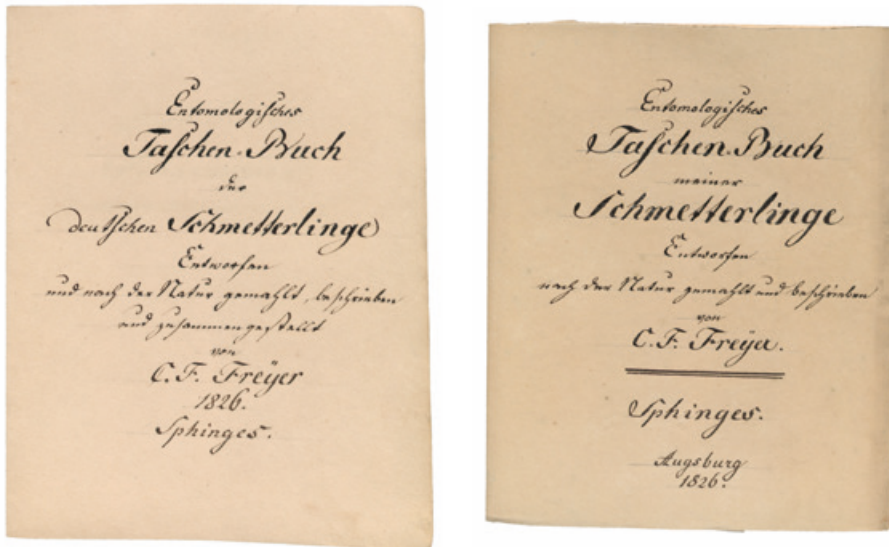 Entomologisches
Taschen-Buch
der
deutschen Schmetterlinge
Entworfen
und nach der Natur gemahlt, beschrieben
und zusammengestellt
von
C. F. Freÿer
1826.
Sphinges.
Entomologisches
Taschen-Buch
meiner
Schmetterlinge
Entworfen
nach der Natur gemahlt und beschrieben
von
C. F. Freÿer.
Sphinges.
Augsburg
1826.